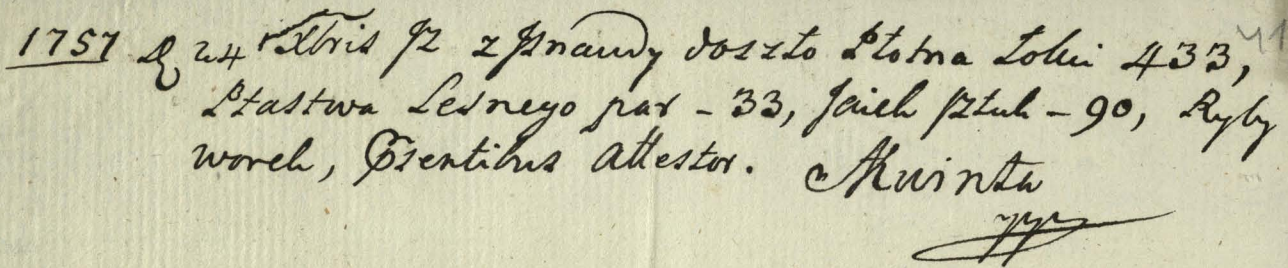 1757 R 24 Xbris Jż z Jznaudy doszło Płotna Łokci 433,
Ptastwa Lesnego par - 33, Jaiek Sztuk - 90, Ryby
worek, Prsentibus Attestor. AKwinta